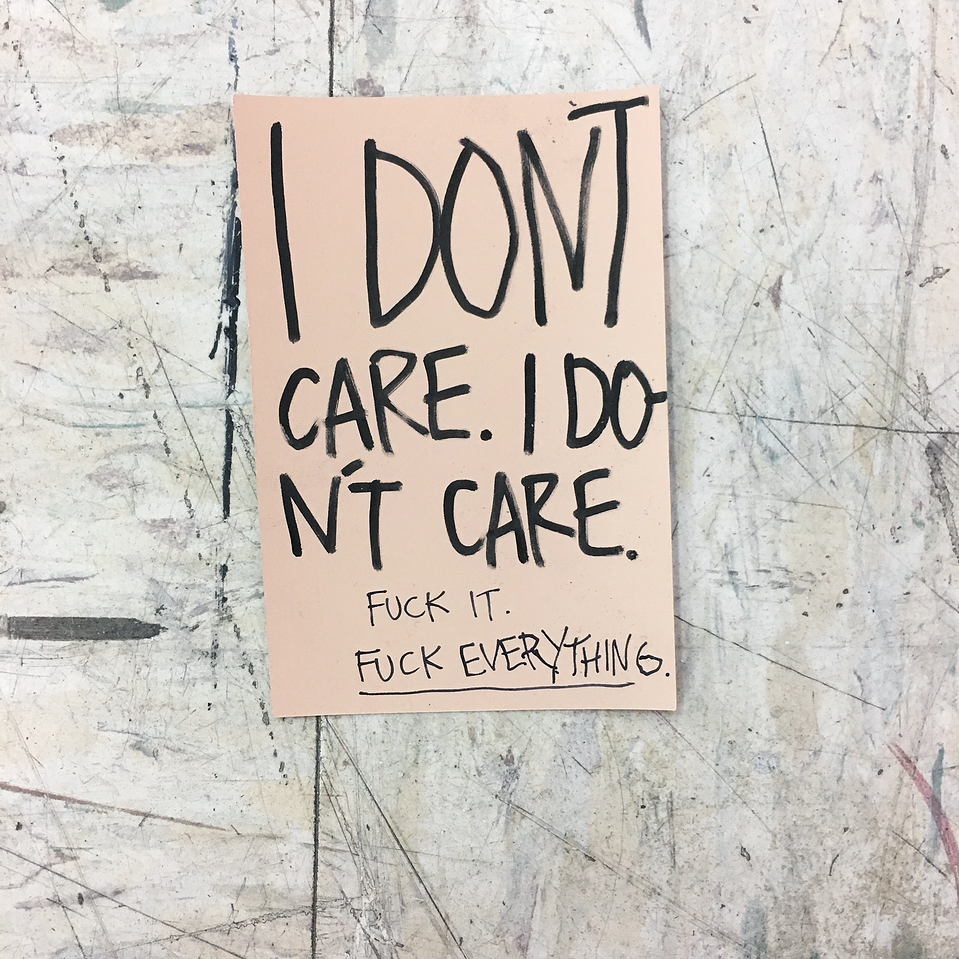 I DONT
CARE. I DO-
N'T CARE.
FUCK IT.
FUCK EVERYTHING.